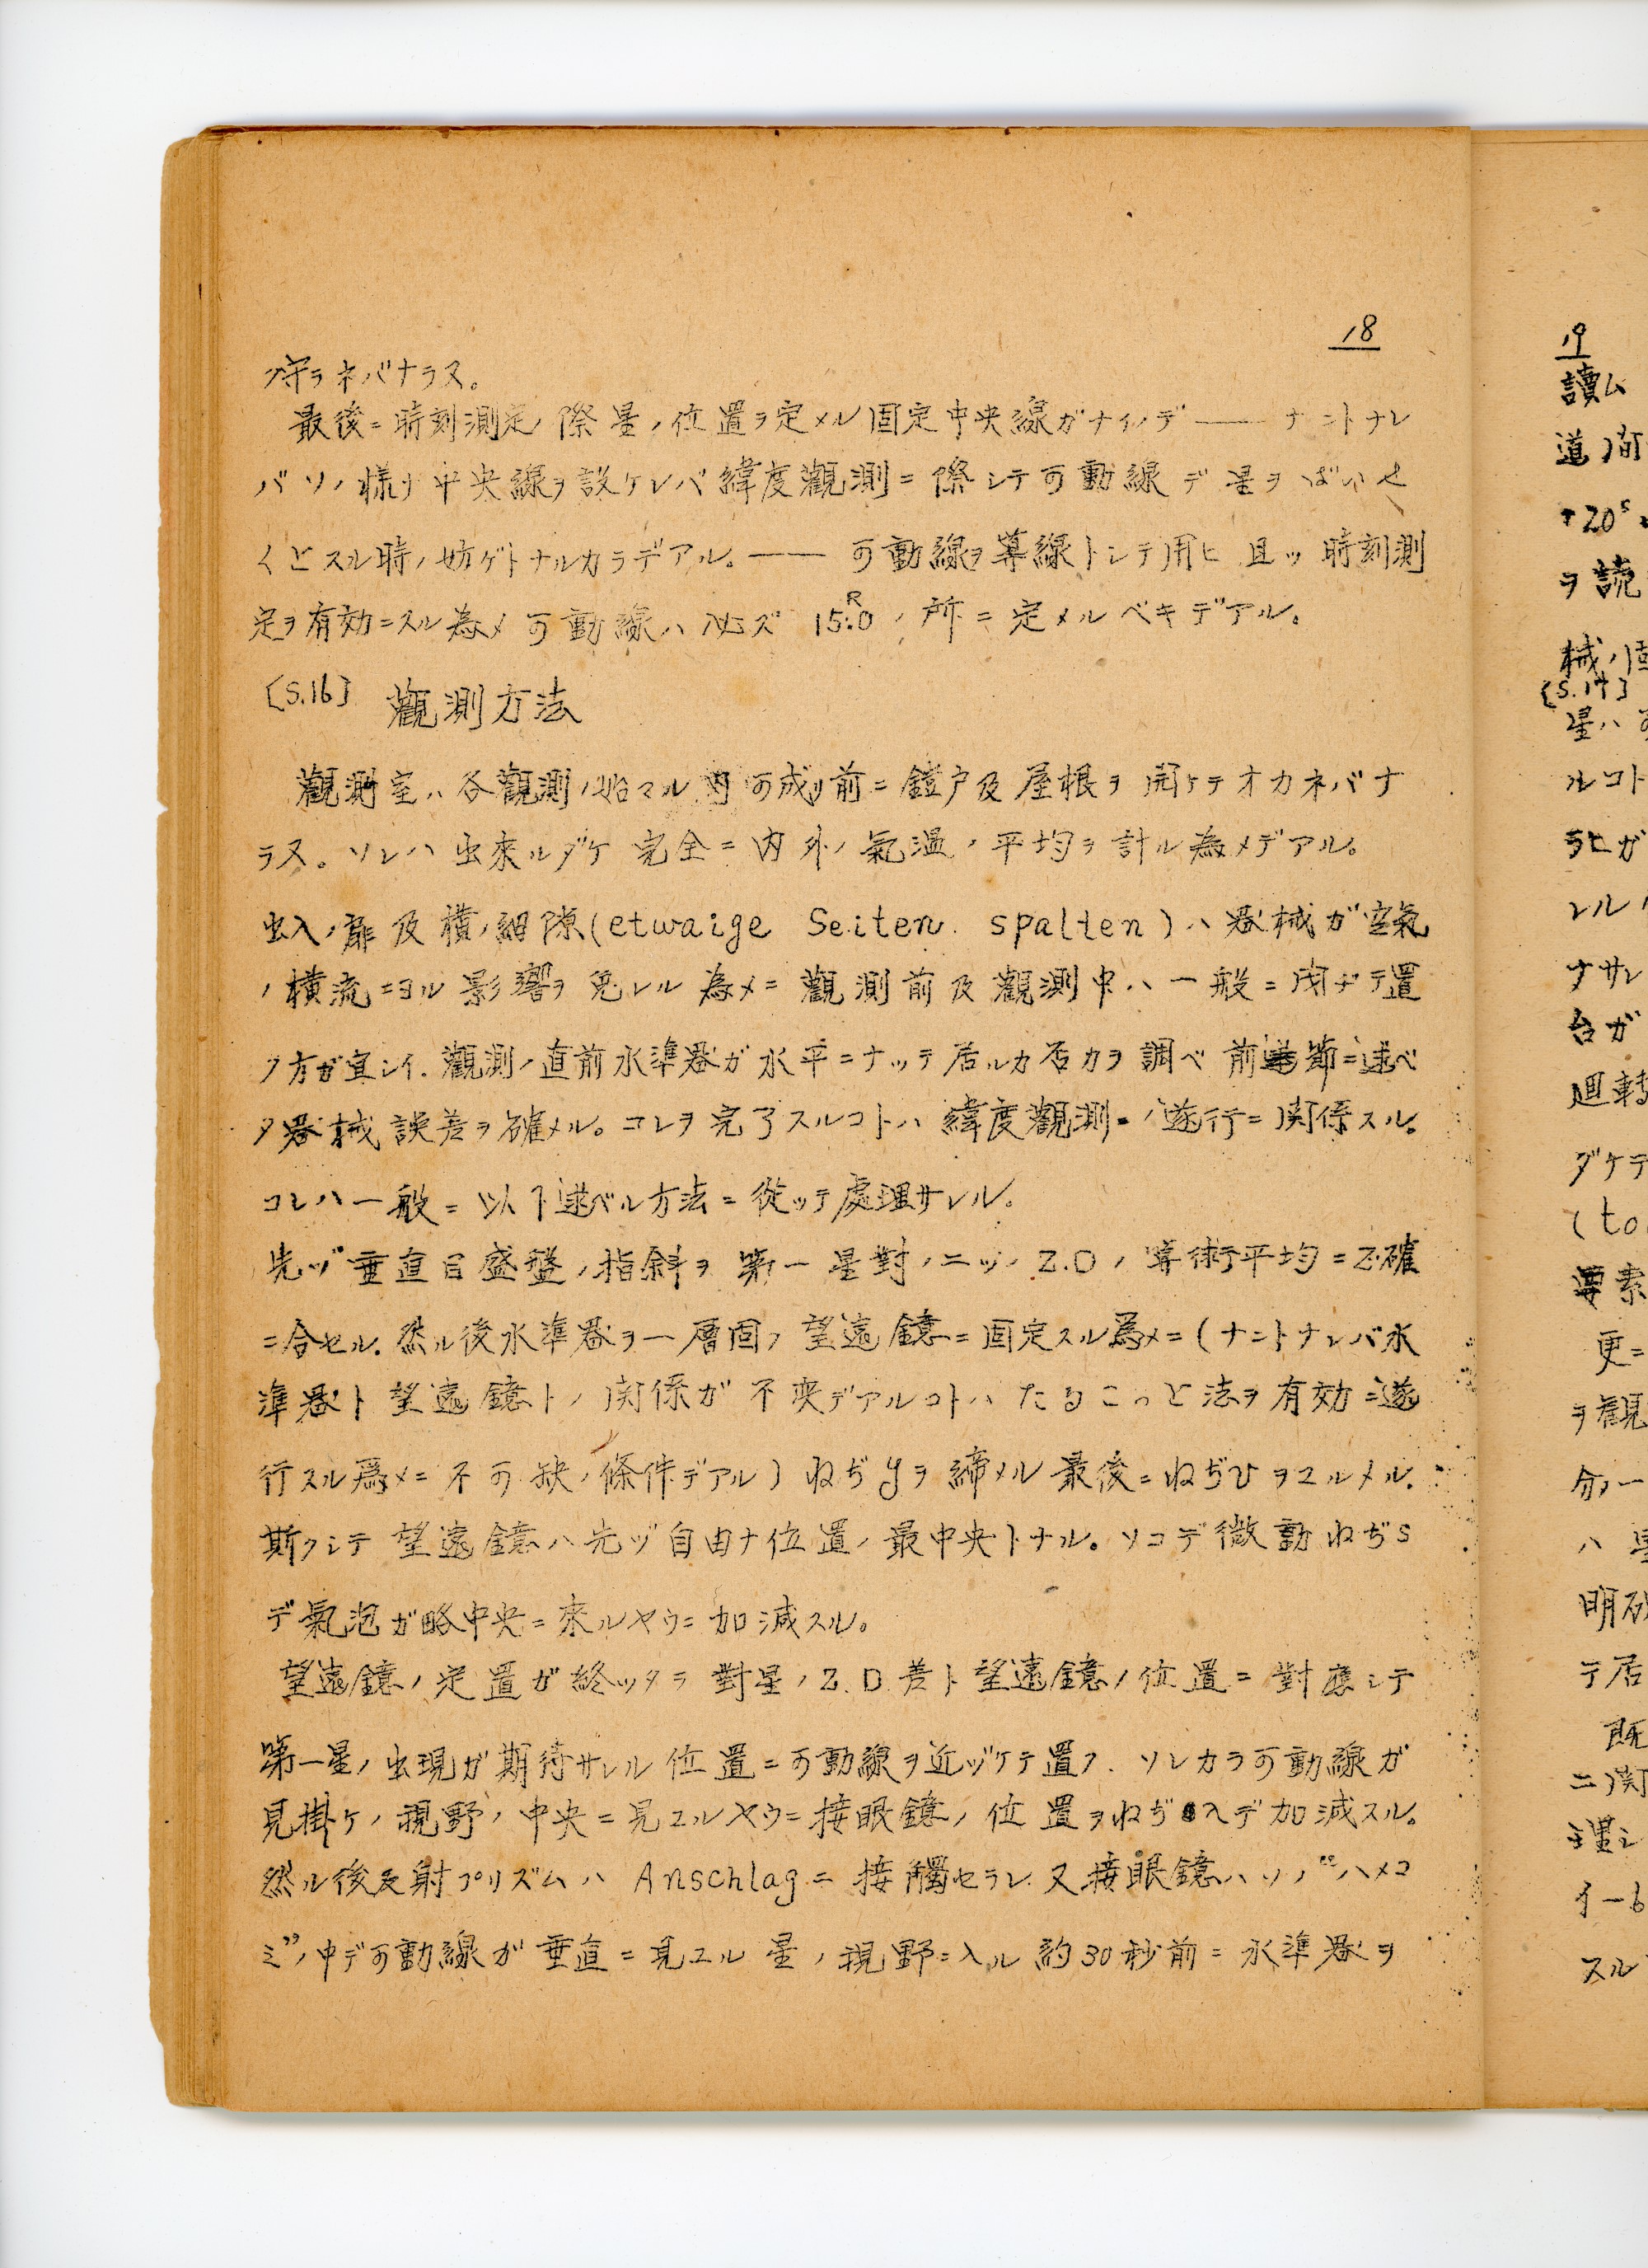 18
守ラネバナラヌ。
最後ニ時刻測定ノ際星ノ位置ヲ定メル固定中央線ガナイノデ —— ナントナレ
バソノ様ナ中央線ヲ設ケレバ緯度觀測ニ際シテ可動線デ星ヲばいせ
くとスル時ノ妨ゲトナルカラデアル。—— 可動線ヲ導線トシテ用ヒ且ツ時刻測
定ヲ有効ニスル為メ可動線ハ必ズ 15.0ᴿ ノ所ニ定メルベキデアル。
[S.16] 觀測方法
觀測室ハ各觀測ノ始マル前可成リ前ニ鎧戸及屋根ヲ開ケテオカネバナ
ラヌ。ソレハ出來ルダケ完全ニ内外ノ氣温ノ平均ヲ計ル為メデアル。
出入ノ扉及横ノ細隙(etwaige Seiten spalten)ハ器械ガ空氣
ノ横流ニヨル影響ヲ免レル為メニ觀測前及觀測中ハ一般ニ閉ヂテ置
ク方ガ宜シイ. 觀測ノ直前水準器ガ水平ニナッテ居ルカ否カヲ調ベ前節ニ述ベ
タ器械誤差ヲ確メル。コレヲ完了スルコトハ緯度觀測ノ遂行ニ関係スル。
コレハ一般ニ以下述ベル方法ニ從ッテ處理サレル。
先ヅ垂直目盛盤ノ指斜ヲ第一星對ノ二ツノ Z.D ノ算術平均ニ正確
ニ合セル. 然ル後水準器ヲ一層固ク望遠鏡ニ固定スル爲メニ(ナントナレバ水
準器ト望遠鏡トノ関係ガ不変デアルコトハたるこっと法ヲ有効ニ遂
行スル爲メニ不可缺ノ條件デアル) ねぢyヲ締メル最後ニねぢひヲユルメル.
斯クシテ望遠鏡ハ先ヅ自由ナ位置ノ最中央トナル。ソコデ微動ねぢs
デ氣泡ガ略中央ニ來ルヤウニ加減スル。
望遠鏡ノ定置ガ終ッタラ對星ノ Z.D.差ト望遠鏡ノ位置ニ對應シテ
第一星ノ出現ガ期待サレル位置ニ可動線ヲ近ヅケテ置ク. ソレカラ可動線ガ
見掛ケノ視野ノ中央ニ見エルヤウニ接眼鏡ノ位置ヲねぢヘデ加減スル。
然ル後反射プリズムハ Anschlag ニ接觸セラレ又接眼鏡ハソノ"ハメコ
ミ"ノ中デ可動線ガ垂直ニ見エル星ノ視野ニ入ル約30秒前ニ水準器ヲ
19
讀ム
道ノ
+20ˢ
ヲ読
械ノ
[S.17]
星ハ
ルコト
ラヒガ
レル
ナサレ
台ガ
廻轉
ダケテ
(to
要素
更ニ
ヲ観
分ノ一
ハ
明
テ居
既
ニ関
理シ
イーb
スル